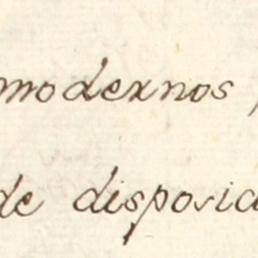 modernos,
de disposic